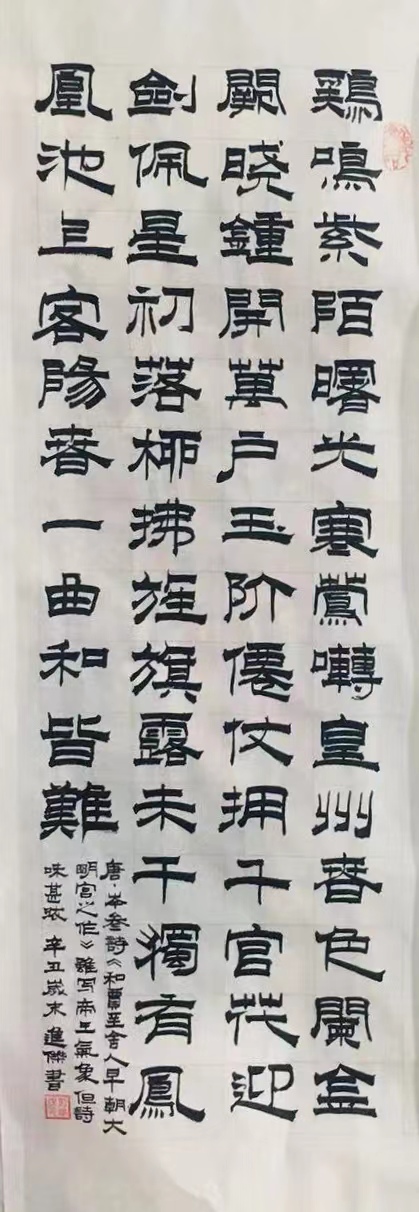 鷄鳴紫陌曙光寒鶯囀皇州春色闌金
闕晓鍾開萬户玉阶僊仗拥千官花迎
劍佩星初落柳拂旌旗露未干獨有鳳
凰池上客陽春一曲和皆難
唐·岑叁詩《和賈至舍人早朝大
明宫之作》雖写帝王氣象但詩
味甚浓 辛丑歲末 進傑書